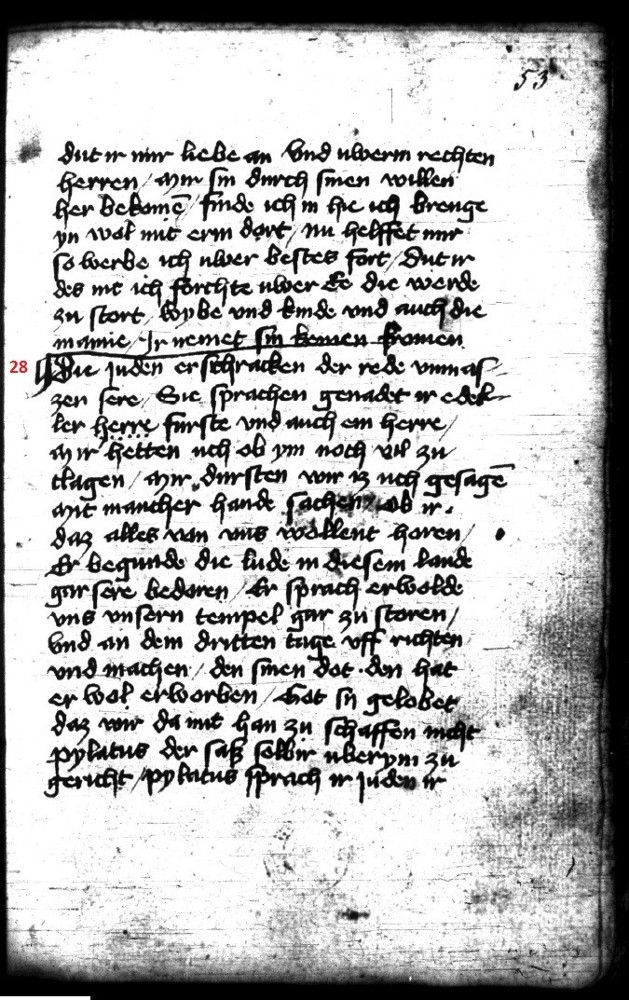 53
dut ir mir liebe an Vnd uwerm rechten
herren / Wir sin durch sinen willen
her bekomē / finde ich in hie ich brenge
yn wol mit erm dort / nu helffet mir
so werbe ich uwer bestes fort / Dut ir
des nit ich forchte uwer Ee die werde
zu stort / wybe vnd kinde vnd auch die
manne / Ir nemet sin keinen fromen
28 Die juden erschracken der rede vnmas-
zen sere / Sie sprachen genadet ir edel-
ler herre furste vnd auch ein herre /
Wir hetten uch ob ym noch vil zu
clagen / Wir dursten wir iz uch gesagē
Mit mancher hande sachen / ob ir
daz alles von vns wollent horen /
Er begunde die lude in diesem lande
gar sere bedoren / Er sprach er wolde
vns vnsern tempel gar zu storen /
vnd an dem dritten tage vff richten
vnd machen / den sinen dot den hat
er wol erworben / Got si gelobet
daz wir da mit han zu schaffen nicht
pylatus der saß selbir uber ym zu
gericht / pylatus sprach ir juden ir